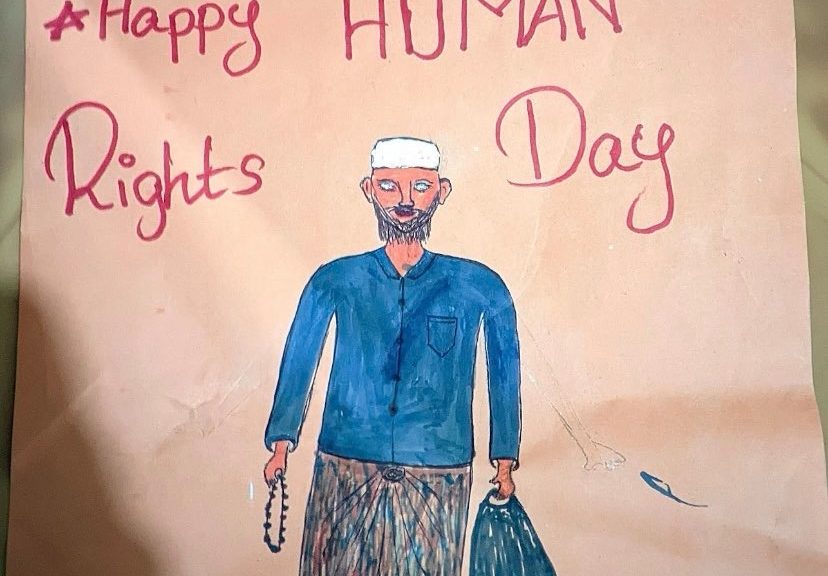 #Happy HUMAN
Rights Day